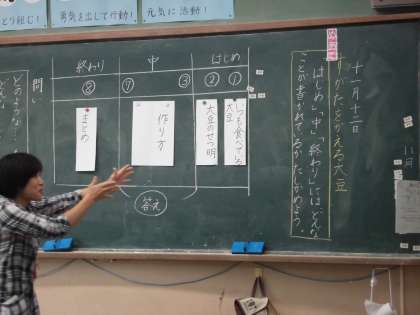 とり組む!
勇気を出して行動!
元気に活動!
十一月十二日
すがたをかえる大豆
「はじめ」「中」「終わり」には、どんな
ことが書かれているかたしかめよう。
はじめ
中
終わり
①
②
③
⑦
⑧
いつも食べている
大豆
大豆のせつ明
作り方
まとめ
答え
問い
どのような
どんな
11月